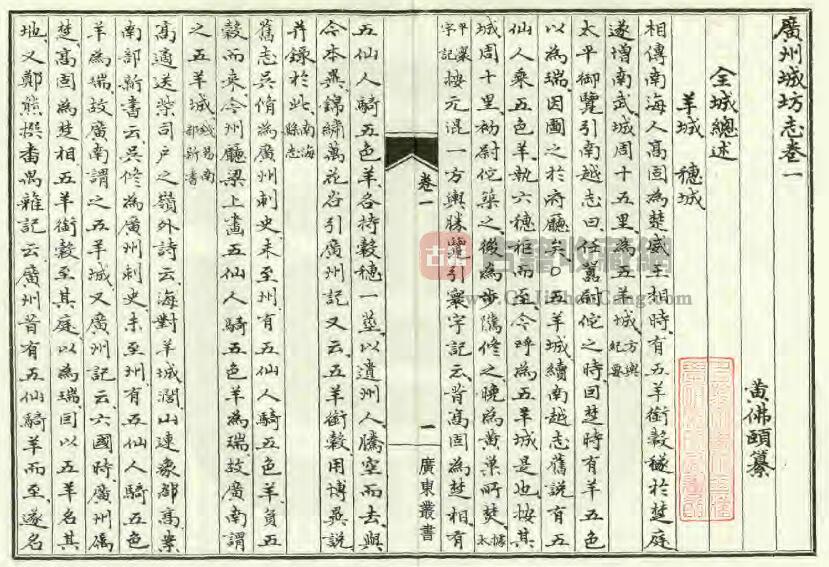 廣州城坊志卷一
黃佛頤纂
全城總述
羊城 穗城
相傳南海人高固為楚威王相時有五羊銜穀穟於楚庭
遂增南武城周十五里為五羊城方輿紀要
太平御覽引南越志曰任囂尉佗之時因楚時有羊五色
以為瑞因圖之於府廳矣○五羊城續南越志舊說有五
仙人乘五色羊執六穗秬而至今呼為五羊城是也按其
城周十里初尉佗築之後為步隲修之晚為黃巢所焚太平寰宇記
按元混一方輿勝覽引寰宇記云昔高固為楚相有
卷一
一
廣東叢書
五仙人騎五色羊各持穀穗一莖以遺州人騰空而去與
今本異錦繡萬花谷引廣州記又云五羊銜穀用博異說
并錄於此南海縣志
舊志吳脩為廣州刺史未至州有五仙人騎五色羊負五
穀而來今州廳梁上畫五仙人騎五色羊為瑞故廣南謂
之五羊城錢易南部新書
高適送柴司戶之嶺外詩云海對羊城濶山連象郡高案
南部新書云吳修為廣州刺史未至州有五仙人騎五色
羊為瑞故廣南謂之五羊城又廣州記云六國時廣州屬
楚高固為楚相五羊銜穀至其庭以為瑞因以五羊名其
地又鄭熊撰番禺雜記云廣州昔有五仙騎羊而至遂名